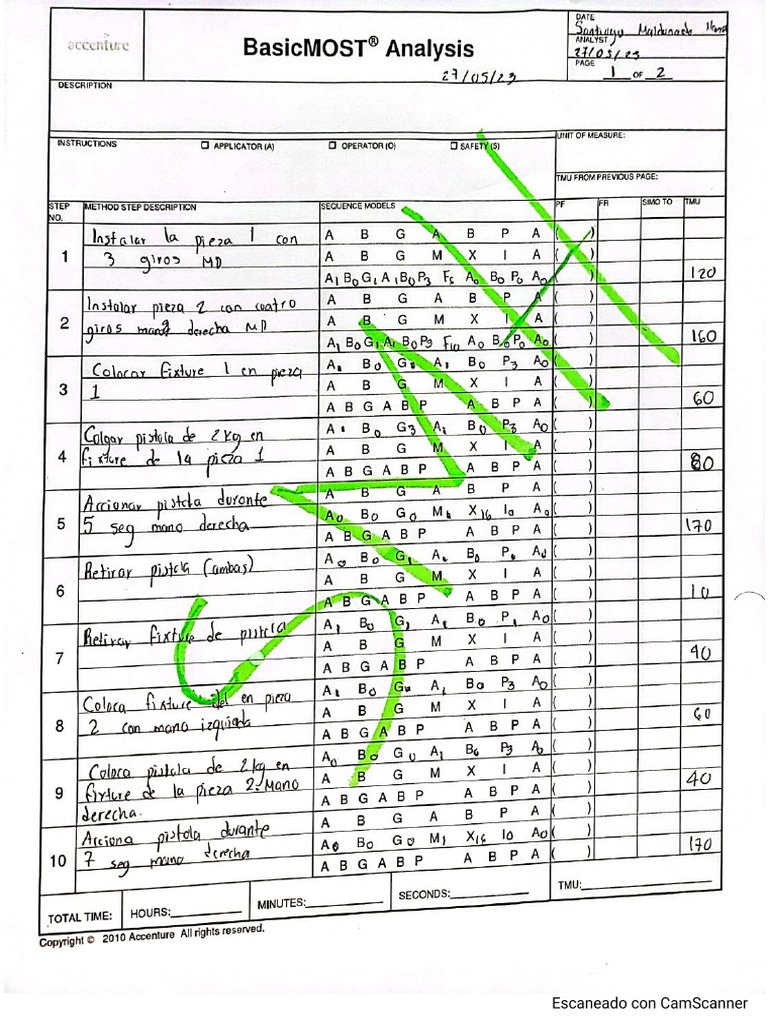 accenture
BasicMOST® Analysis
27/05/23
DATE
Santiago Maldonado
ANALYST
27/05/23
PAGE
1 OF 2
DESCRIPTION
INSTRUCTIONS
APPLICATOR (A)
OPERATOR (O)
SAFETY (S)
UNIT OF MEASURE:
TMU FROM PREVIOUS PAGE:
STEP NO.
METHOD STEP DESCRIPTION
SEQUENCE MODELS
PF
FR
SIMO TO
TMU
1
Instalar la pieza 1 con
3 giros MD
A B G A B P A ( )
A B G M X I A ( )
A1 B0 G1 A1 B0 P3 F6 A0 B0 P0 A0 ( ) 120
2
Instalar pieza 2 con cuatro
giros mano derecha MD
A B G A B P A ( )
A B G M X I A ( )
A1 B0 G1 A1 B0 P3 F10 A0 B0 P0 A0 ( ) 160
3
Colocar Fixture 1 en pieza
1
A1 B0 G0 A1 B0 P3 A0 ( )
A B G M X I A ( )
A B G A B P A B P A ( ) 60
4
Colgar pistola de 2 kg en
fixture de la pieza 1
A1 B0 G3 A1 B0 P3 A0 ( )
A B G M X I A ( )
A B G A B P A B P A ( ) 80
5
Accionar pistola durante
5 seg mano derecha
A B G A B P A ( )
A0 B0 G0 M1 X16 I0 A0 ( )
A B G A B P A B P A ( ) 170
6
Retirar pistola (ambas)
A0 B0 G1 A0 B0 P0 A0 ( )
A B G M X I A ( )
A B G A B P A B P A ( ) 10
7
Retirar fixture de pistola
A1 B0 G1 A1 B0 P1 A0 ( )
A B G M X I A ( )
A B G A B P A B P A ( ) 40
8
Coloca fixture del en pieza
2 con mano izquiada
A1 B0 G0 A1 B0 P3 A0 ( )
A B G M X I A ( )
A B G A B P A B P A ( ) 60
9
Coloca pistola de 2kg en
fixture de la pieza 2. Mano
derecha.
A0 B0 G0 A1 B0 P3 A0 ( )
A B G M X I A ( )
A B G A B P A B P A ( ) 40
10
Acciona pistola durante
7 seg mano derecha
A B G A B P A ( )
A0 B0 G0 M1 X16 I0 A0 ( )
A B G A B P A B P A ( ) 170
TOTAL TIME:
HOURS:
MINUTES:
SECONDS:
TMU:
Copyright © 2010 Accenture All rights reserved.
Escaneado con CamScanner